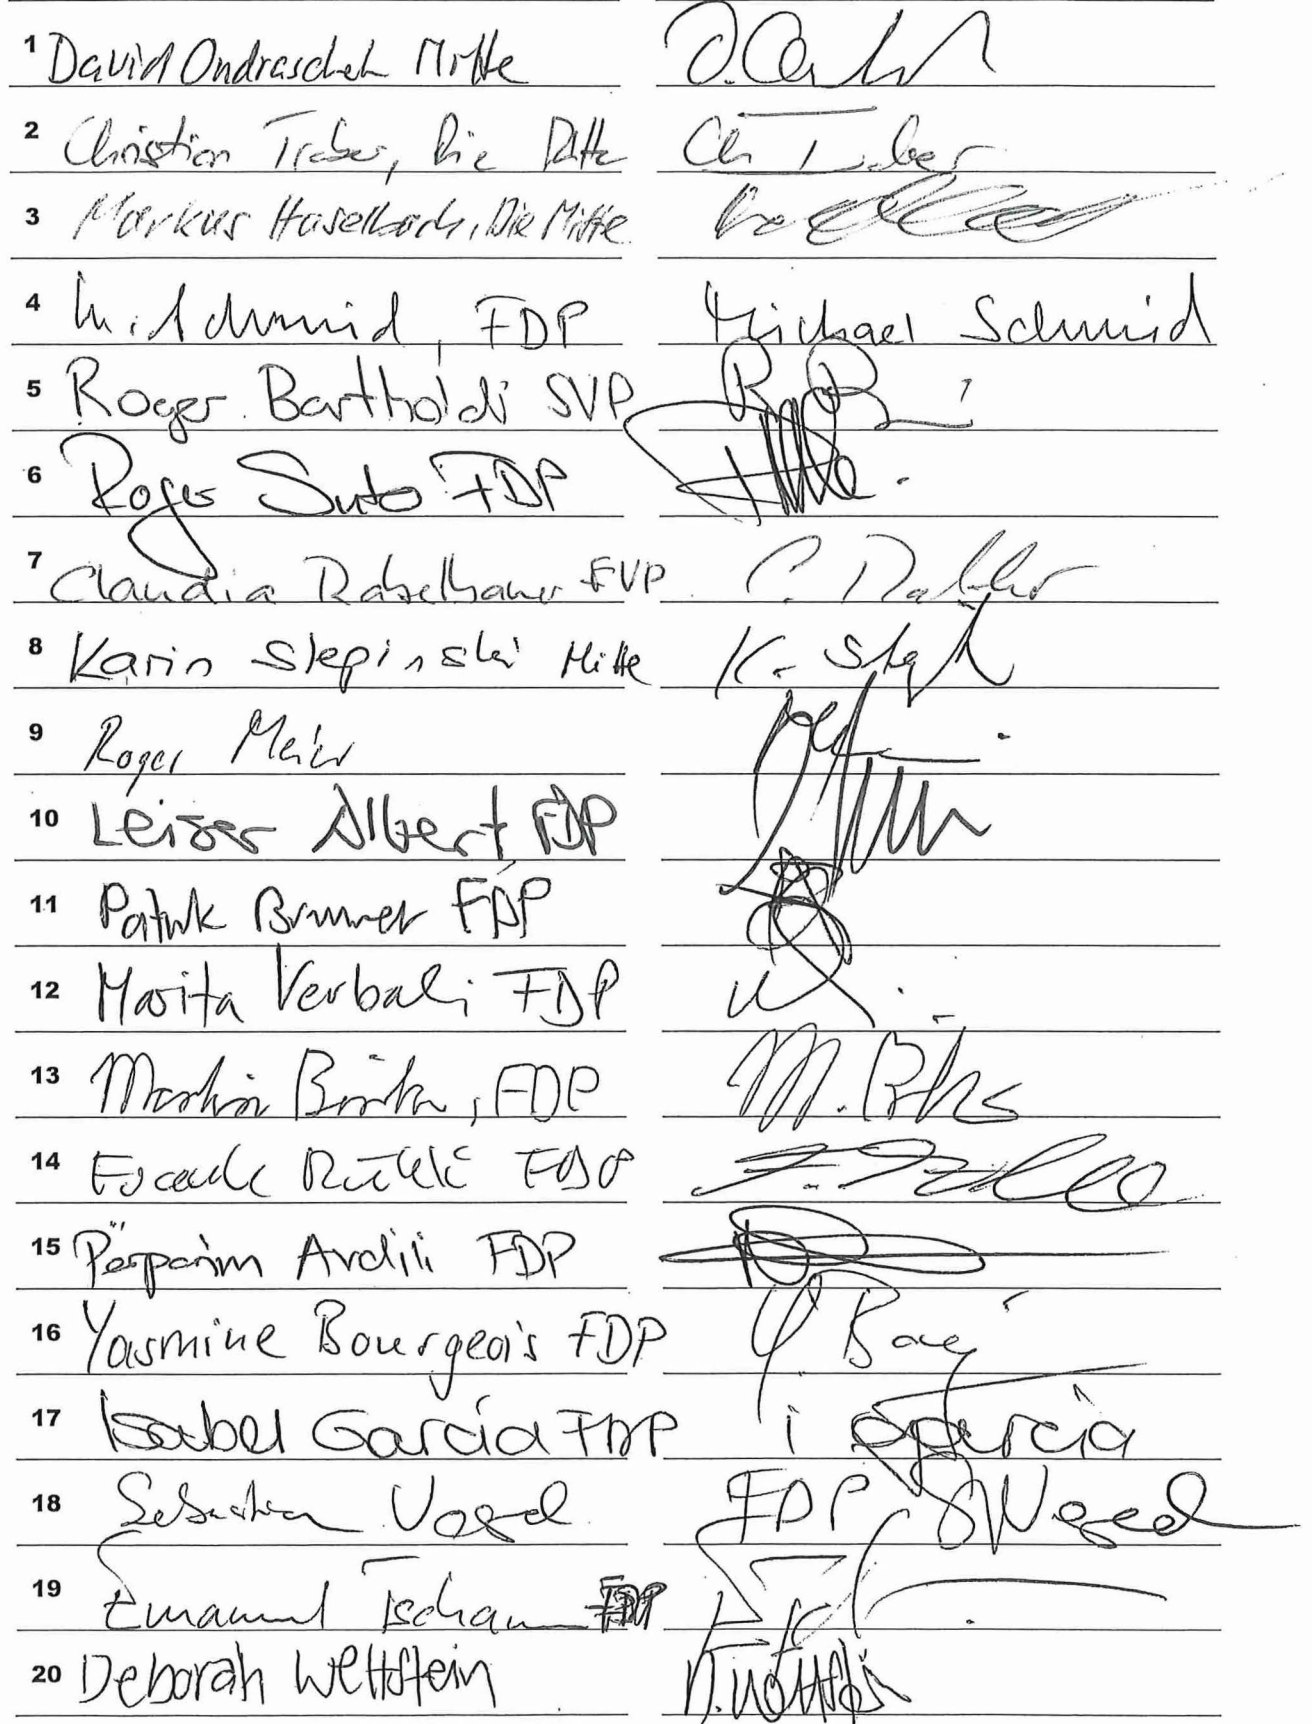 1 David Ondraschek Mitte
2 Christian Traber, Die Mitte Ch Traber
3 Markus Haselbach, Die Mitte
4 M. Schmid, FDP Michael Schmid
5 Roger Bartholdi SVP
6 Roger Suter FDP
7 Claudia Rabelbauer EVP
8 Karin Stepinski Mitte K.
9 Roger Meier
10 Leiser Albert FDP
11 Patrik Brunner FDP
12 Marita Verbali FDP
13 Martin Bürki, FDP M.
14 FDP
15 Përparim Avdili FDP
16 Yasmine Bourgeois FDP Y.
17 Isabel Garcia FDP i garcia
18 Sebastian Vogel FDP S Vogel
19 Emanuel Tschannen FDP
20 Deborah Wettstein D.